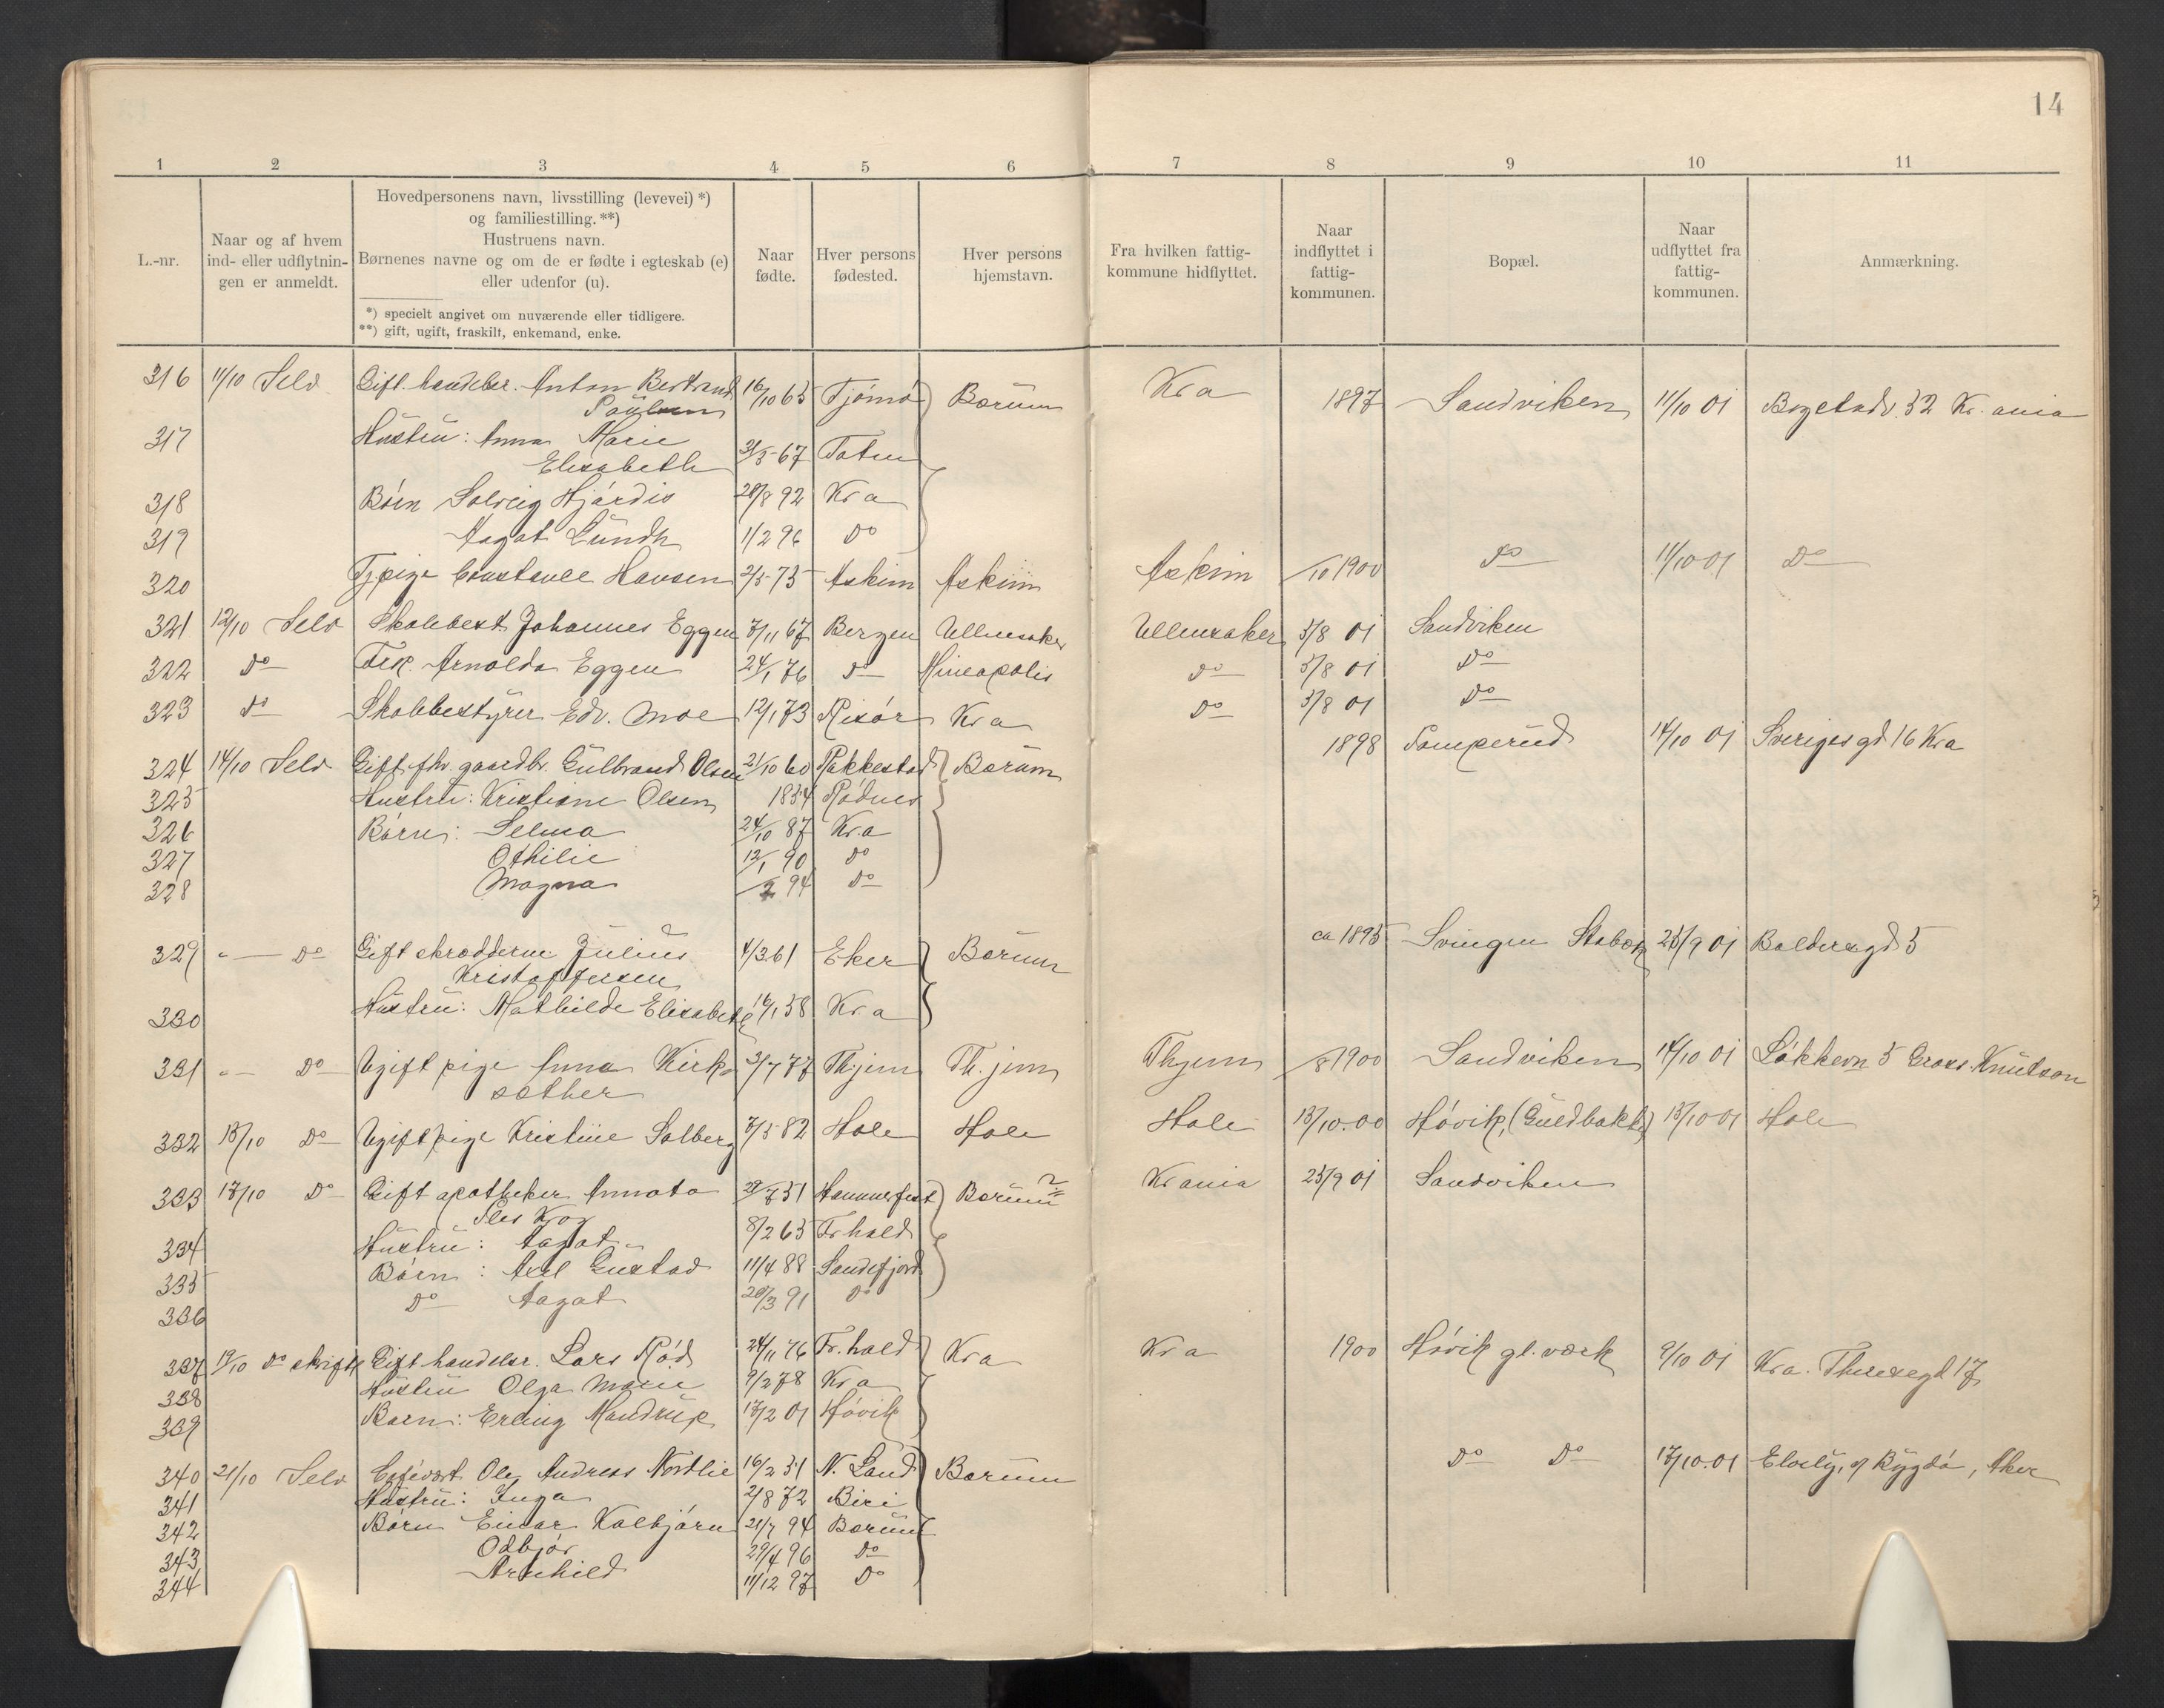 14
1 2 3 4 5 6 7 8 9 10 11
L.-nr.
Naar og af hvem
ind- eller udflytnin-
gen er anmeldt.
Hovedpersonens navn, livsstilling (levevei) *)
og familiestilling. **)
Hustruens navn.
Børnenes navne og om de er fødte i egteskab (e)
eller udenfor (u).
*) specielt angivet om nuværende eller tidligere.
**) gift, ugift, fraskilt, enkemand, enke.
Naar
fødte.
Hver persons
fødested.
Hver persons
hjemstavn.
Fra hvilken fattig-
kommune hidflyttet.
Naar
indflyttet i
fattig-
kommunen.
Bopæl.
Naar
udflyttet fra
fattig-
kommunen.
Anmærkning.
316 11/10 Selv Gift handelsr. Anton Bertrand 16/10 65 Tjømø Bærum Kra 1897 Sandviken 11/10 01 Bogstadv. 32 Kr.ania
Paulsen
317 Hustru: Anna Marie
Elisabeth 31/5 67 Toten
318 Børn Solveig Hjørdis 28/8 92 Kra
319 Aagot Lundh 1/2 96 Do
320 Tj.pige Constance Hansen 2/5 75 Askim Askim Askim /10 1900 Do 11/10 01 Do
321 12/10 Selv Skolebest. Johannes Eggen 7/11 67 Bergen Ullensaker Ullensaker 3/8 01 Sandviken
322 Do Frk. Arnolda Eggen 24/1 76 Do Mineapolis Do 3/8 01 Do
323 Do Skolebestyrer Edv. Moe 12/1 73 Risør Kra Do 3/8 01 Do
324 14/10 Selv Gift fhv. gaardbr. Gulbrand Olsen 21/10 60 Rakkestad Bærum 1898 14/10 01 Sverigesgd 16 Kra
325 Hustru: Kristiane Olsen 1854 Rødnes
326 Børn: Selma 24/10 87 Kr.a
327 Othilie 12/1 90 Do
328 Magna /2 94 Do
329 " Do Gift skrædderm Julius 4/3 61 Eker Bærum ca 1895 Svingen Stabæk 25/9 01 Baldersgd 5
Kristoffersen
330 Hustru: Mathilde Elisabeth 16/1 58 Kr.a
331 " Do Ugift pige Anna Kirke- 3/7 77 Th.jem Th.jem Th.jem /8 1900 Sandviken 14/10 01 Løkkevn 5 Gross. Knutson
sæther
332 15/10 Do Ugift pige Kristine Solberg 7/5 82 Hole Hole Hole 13/10.00 Høvik, (Guldbakke) 13/10 01 Hole
333 17/10 Do Gift apotheker Annata 29/7 51 Hammerfest Bærum ? Kr.ania 25/9 01 Sandviken
Krog
334 Hustru: Aagot 8/2 65 Fr.hald
335 Børn: Axel Gustav 11/4 88 Sandefjord
336 Do Aagot 20/3 91 Do
337 19/10 Do skriftl Gift handelsr. Lars Rød 24/11 76 Fr.hald Kr.a Kr.a 1900 Høvik gl. værk 9/10 01 Kra. Theresegd 17
338 Hustru Olga Marie 9/2 78 Kr.a
339 Barn: Erling Mandrup 17/2 01 Høvik
340 21/10 Selv Ole Andreas Nordlie 16/2 51 N. Land Bærum Do Do 17/10.01 Bygdø, Aker
341 Hustru: Inga 2/8 72 Biri
342 Børn Einar Kolbjørn 21/7 94 Bærum
343 Odbjør 29/4 96 Do
344 Arnhild 11/12 97 Do